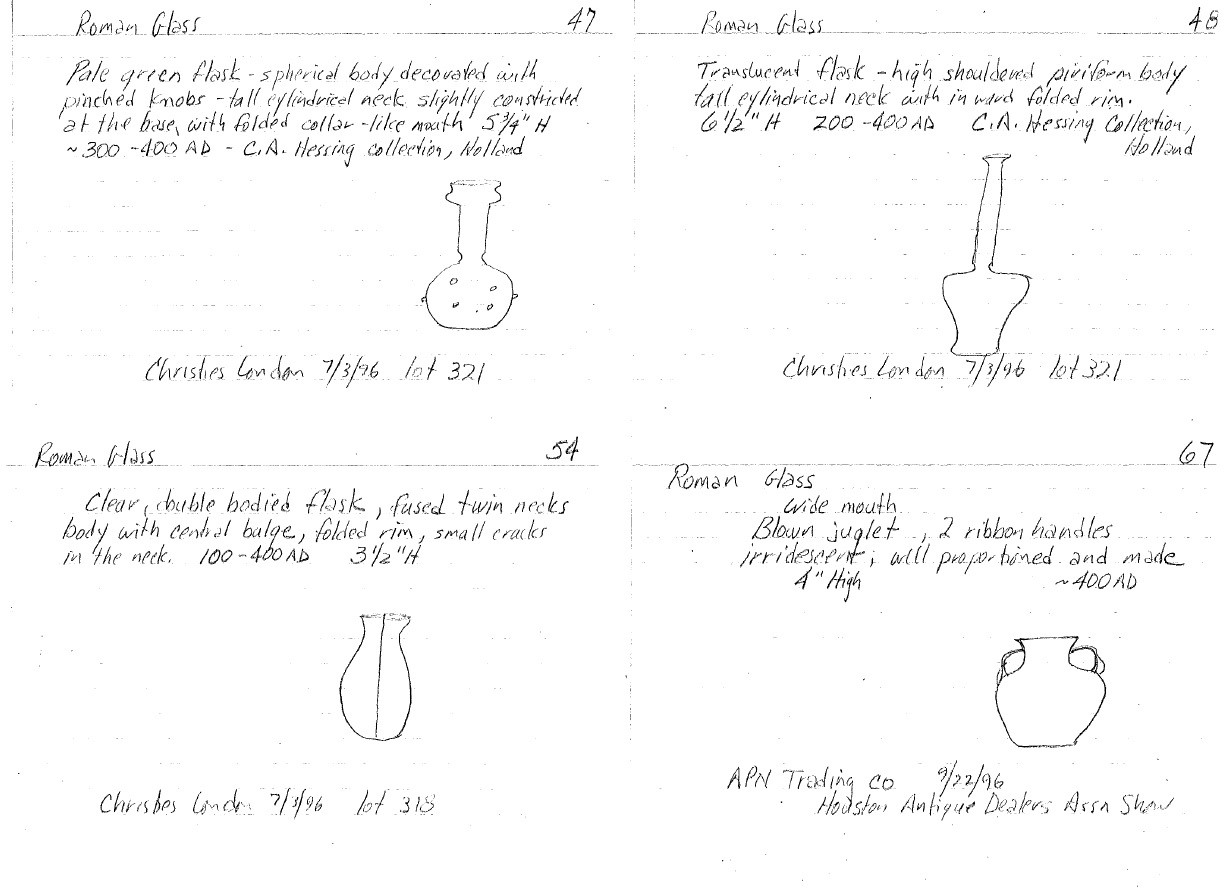 Roman Glass 47
Pale green flask - spherical body decorated with
pinched knobs - tall cylindrical neck slightly constricted
at the base, with folded collar-like mouth 5 3/4" H
~300-400 AD - C.A. Hessing collection, Holland
Christies London 7/3/96 lot 321
Roman Glass 48
Translucent flask - high shouldered piriform body
tall cylindrical neck with inward folded rim.
6 1/2" H 200-400 AD C.A. Hessing Collection,
Holland
Christies London 7/3/96 lot 321
Roman Glass 54
Clear, double bodied flask, fused twin necks
body with central bulge, folded rim, small cracks
in the neck. 100-400 AD 3 1/2" H
Christies London 7/3/96 lot 318
67
Roman Glass
wide mouth
Blown juglet, 2 ribbon handles
irridescent; well proportioned and made
4" High ~400 AD
APN Trading Co 9/22/96
Houston Antique Dealers Assn Show